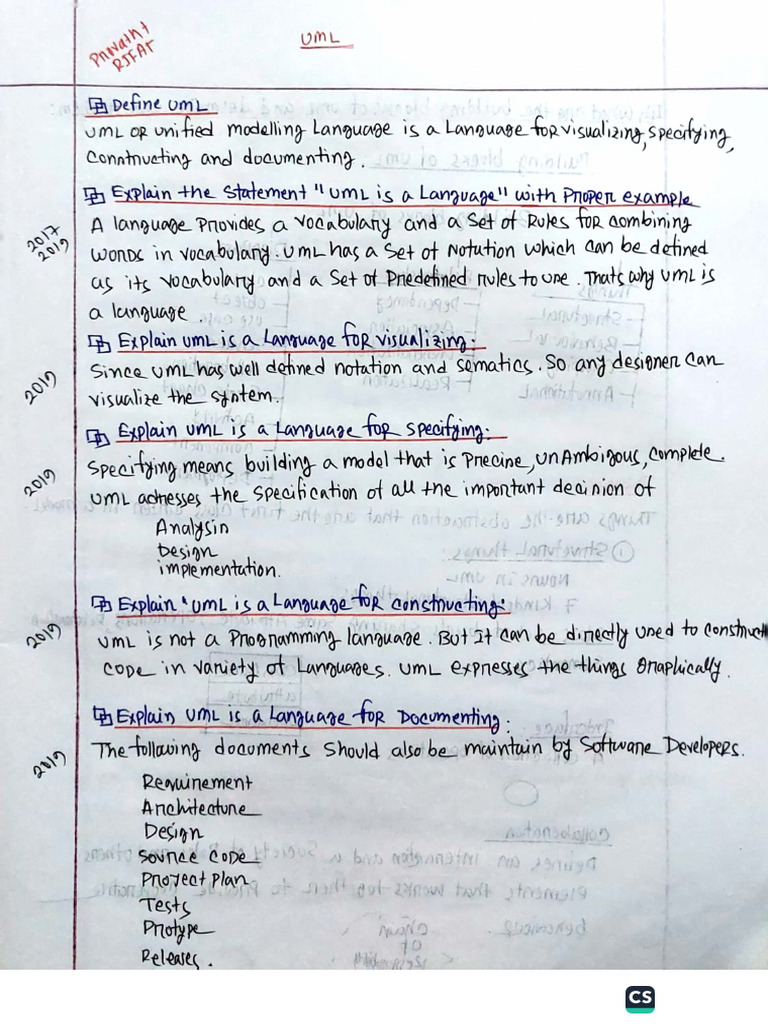 UML
Define UML
UML OR Unified Modelling Language is a Language for visualizing, specifying,
Constructing and documenting.
Explain the statement "UML is a Language" with proper example
2017
2019
A language provides a vocabulary and a set of rules for combining
words in vocabulary. UML has a set of Notation which can be defined
as its vocabulary and a set of Predefined rules to use. Thats why UML is
a language.
Explain UML is a Language for visualizing:
2019
Since UML has well defined notation and sematics. So any designer can
visualize the system.
Explain UML is a Language for specifying:
2019
Specifying means building a model that is Precise, UnAmbigous, complete.
UML adresses the specification of all the important decision of
Analysis
Design
implementation.
Explain "UML is a Language for constructing:"
2019
UML is not a Programming language. But It can be directly used to construct
code in variety of Languages. UML expresses the things Graphically.
Explain UML is a Language for Documenting:
2019
The following documents should also be maintain by Software Developers.
Requirement
Architecture
Design
Source code
Project plan
Tests
Protype
Releases.
CS